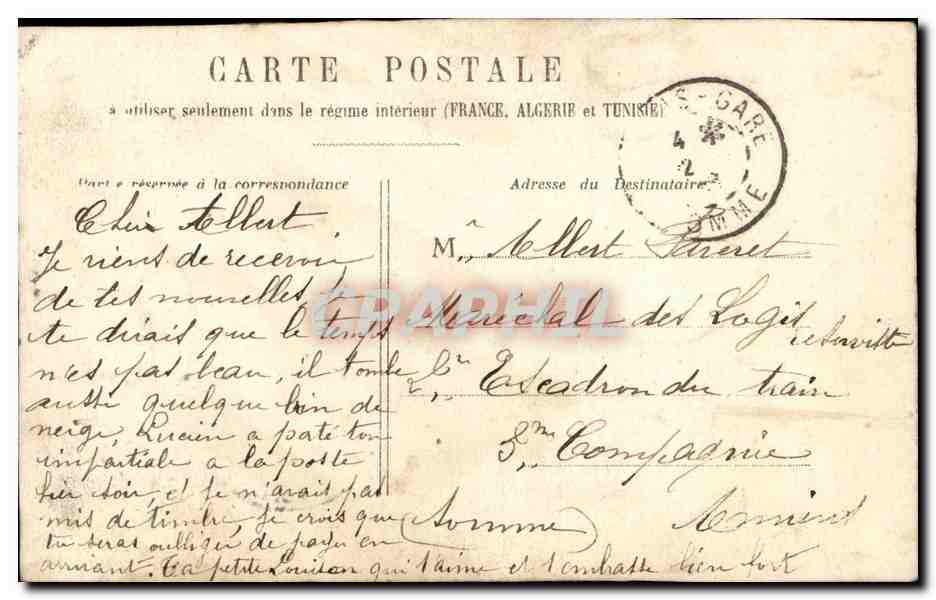 CARTE POSTALE
à utiliser seulement dans le régime intérieur (FRANCE, ALGERIE et TUNISIE)
Partie réservée à la correspondance
Cher Albert
Je viens de recevoir
de tes nouvelles, je
te dirais que le temps
n'es pas beau, il tombe
ausse quelque bin de
neige, Lucien a paté ton
impartiale a la poste
hier soir, et je n'avais pas
mis de timbre, je crois que
tu seras oublliger de payer en
arrivant. Ta petite Louison qui t'aime et t'embrasse bien fort
Adresse du Destinataire
M. Albert
Maréchal des Logis
Escadron du train
Compagnie
(Somme) Amiens
GARE
4
2
SOMME
CPAPHIL